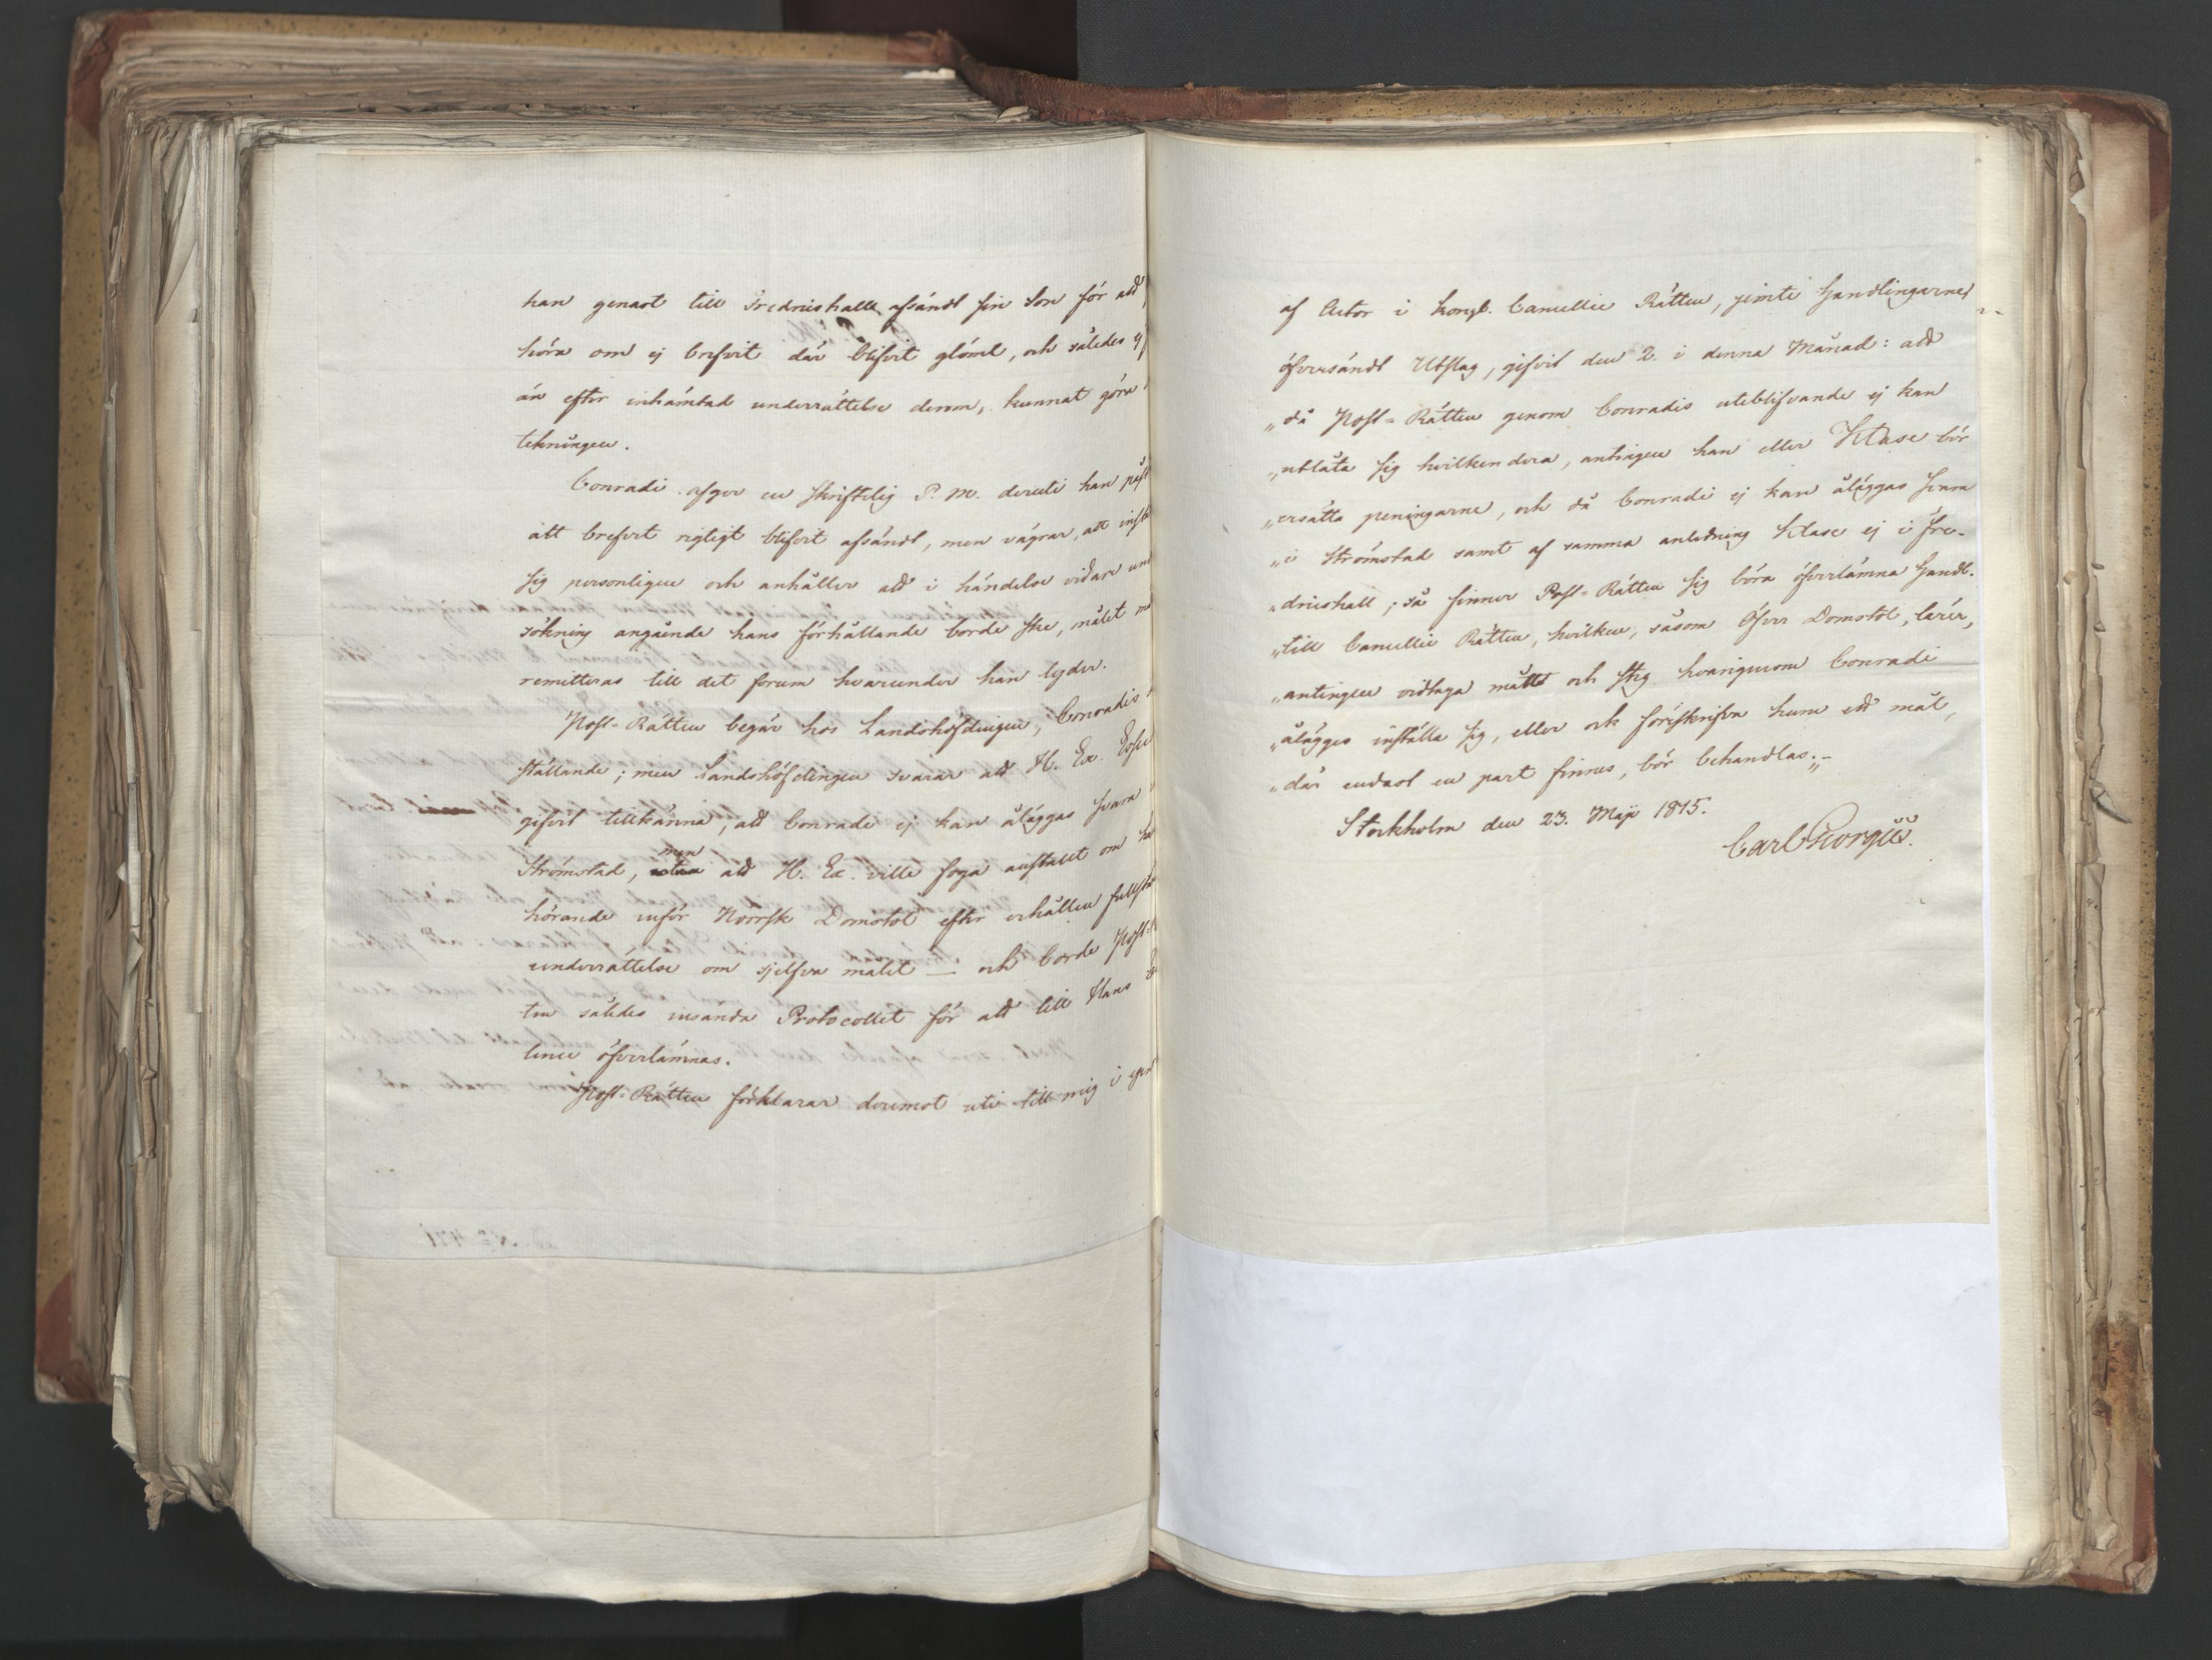 han genast till Fredricshalld afsändt sin Son för att
höra om ej brefvet där blifvit glömt, och således ej
än efter inhämtad underrättelse derom, kunnat göra
tekningen.
Conradi afgor en skriftelig P. M. deruti han på
att brefvet rigtigt blifvit afsändt, men vägrar, att
sig personligen och anhåller att i händelse vidare
sökning angående hans förhållande borde ske, målet
remitteras till det forum hvarunder han lyder.
Post-Rätten begär hos Landshöfdingen, Conradis
ställande; men Landshöfdingen svarar att H. Ex.
gifvit tillkänna, att Conradi ej kan åläggas svara
Strömstad, men att H. Ex. ville foga anstalt om
hörande inför Norrsk Domstol efter erhållen
underrättelse om sjelfva målet — och borde Post-
ten således insända Protocollet för att till Hans
lence öfverlämnas.
Post-Rätten förklarar deremot uti till mig i
af Actor i Kongl. Cancellie Rätten, jemte Handlingarne,
öfversändt Utslag, gifvit den 2. i denna Månad: att
„då Post-Rätten genom Conradis uteblifvande ej kan
„utlåta sig hvilkendera, antingen han eller Klase bör
„ersätta peningarne, och då Conradi ej kan åläggas svara
„i Strömstad samt af samma anledning Klase ej i Fre-
„dricshall; så finner Post-Rätten sig böra öfverlämna Handl.
„till Cancellie Rätten, hvilken, såsom Öfver Domstol, lärer,
„antingen vidtaga mått och steg hvarigenom Conradi
„ålägges inställa sig, eller och föreskrifva huru ett mål,
„där endast en part finnes, bör behandlas.„–
Stockholm den 23. Maji 1815.
Carl Georgii.